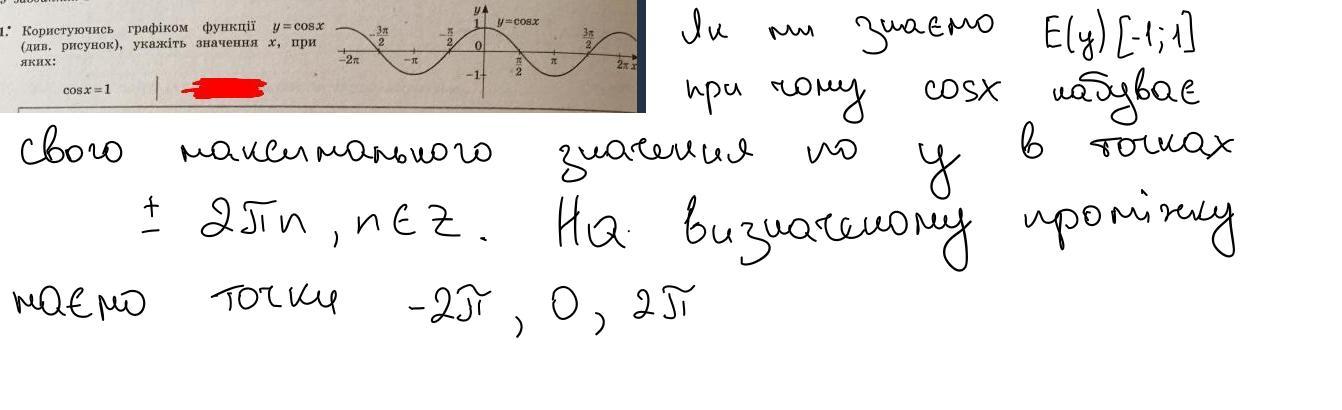 1.° Користуючись графіком функції y = cosx
(див. рисунок), укажіть значення x, при
яких:
cosx = 1
y
1
y=cosx
-3π/2
-π/2
0
3π/2
-2π
-π
π/2
π
2π x
-1
Як ми знаємо E(y) [-1; 1]
при чому cosx набуває
свого максимального значення по y в точках
± 2πn, n∈Z. На визначеному проміжку
маємо точки -2π, 0, 2π